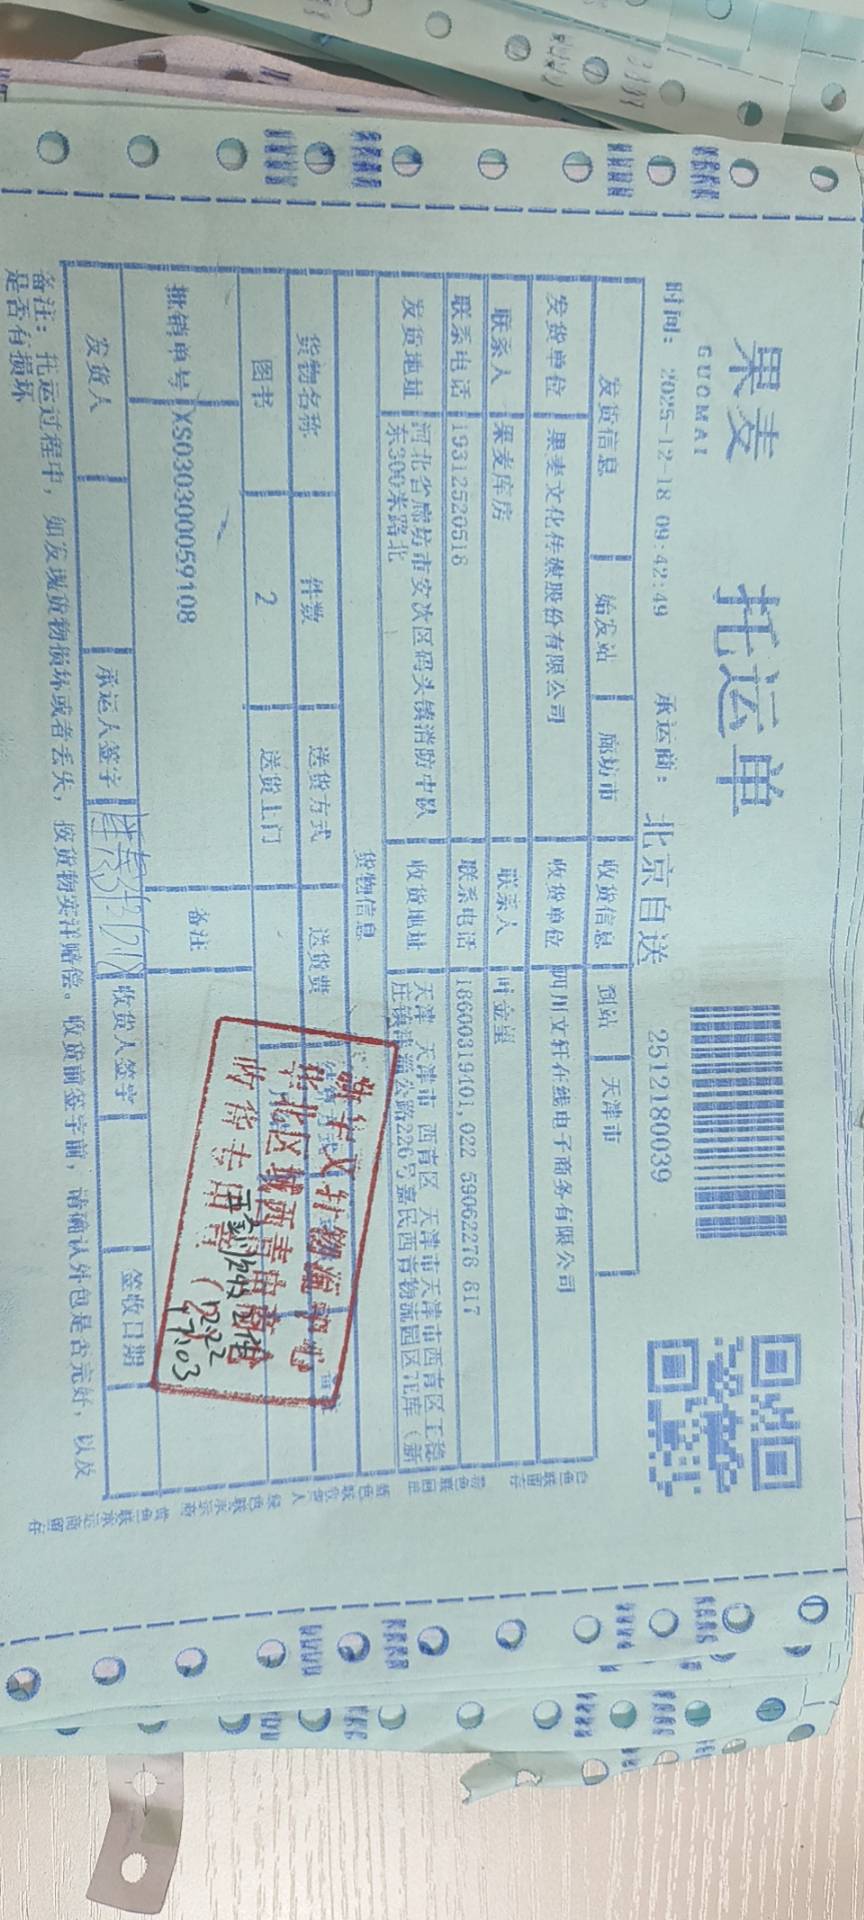 果麦
GUOMAI
托运单
2512180039
时间: 2025-12-18 09:42:49 承运商: 北京自送
发货信息 始发站 廊坊市 收货信息 到站 天津市
发货单位 果麦文化传媒股份有限公司 收货单位 四川文轩在线电子商务有限公司
联系人 果麦库房 联系人 叶金玺
联系电话 19312520518 联系电话 18600319401,022 59062276 817
发货地址 河北省廊坊市安次区码头镇消防中队东300米路北 收货地址 天津 天津市 西青区 天津市天津市西青区王稳庄镇津淄公路226号嘉民西青物流园区
货物信息
货物名称 件数 送货方式 送货费
图书 2 送货上门
批销单号 XS030300059108 备注
发货人 承运人签字 收货人签字 签收日期
备注: 托运过程中, 如发现货物损坏或者丢失, 按货物实洋赔偿。收货前签字前, 请确认外包是否完好, 以及
是否有损坏
新华文轩物流中心
华北区域西青电商仓
收货专用章
12.22
17:03
白色联留存
黄色联承运商留存